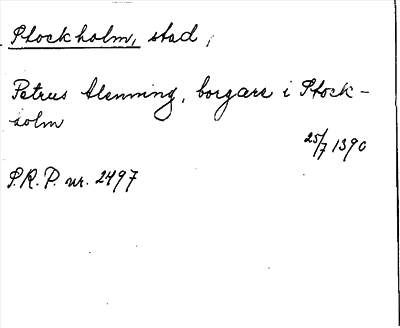 Stockholm, stad,
Petrus Henning, borgare i Stock-
holm
25/7 1390
S.R.P. nr. 2497